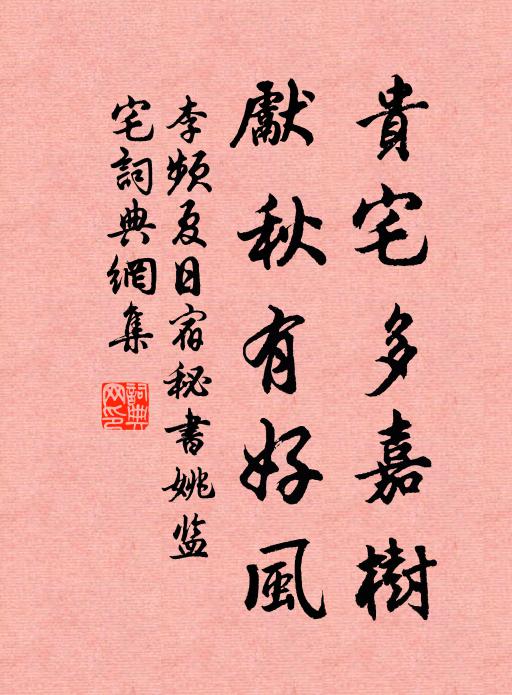 貴宅多嘉樹
獻秋有好風
李频夏日宿秘書姚监
宅詞典網集
詞典网印